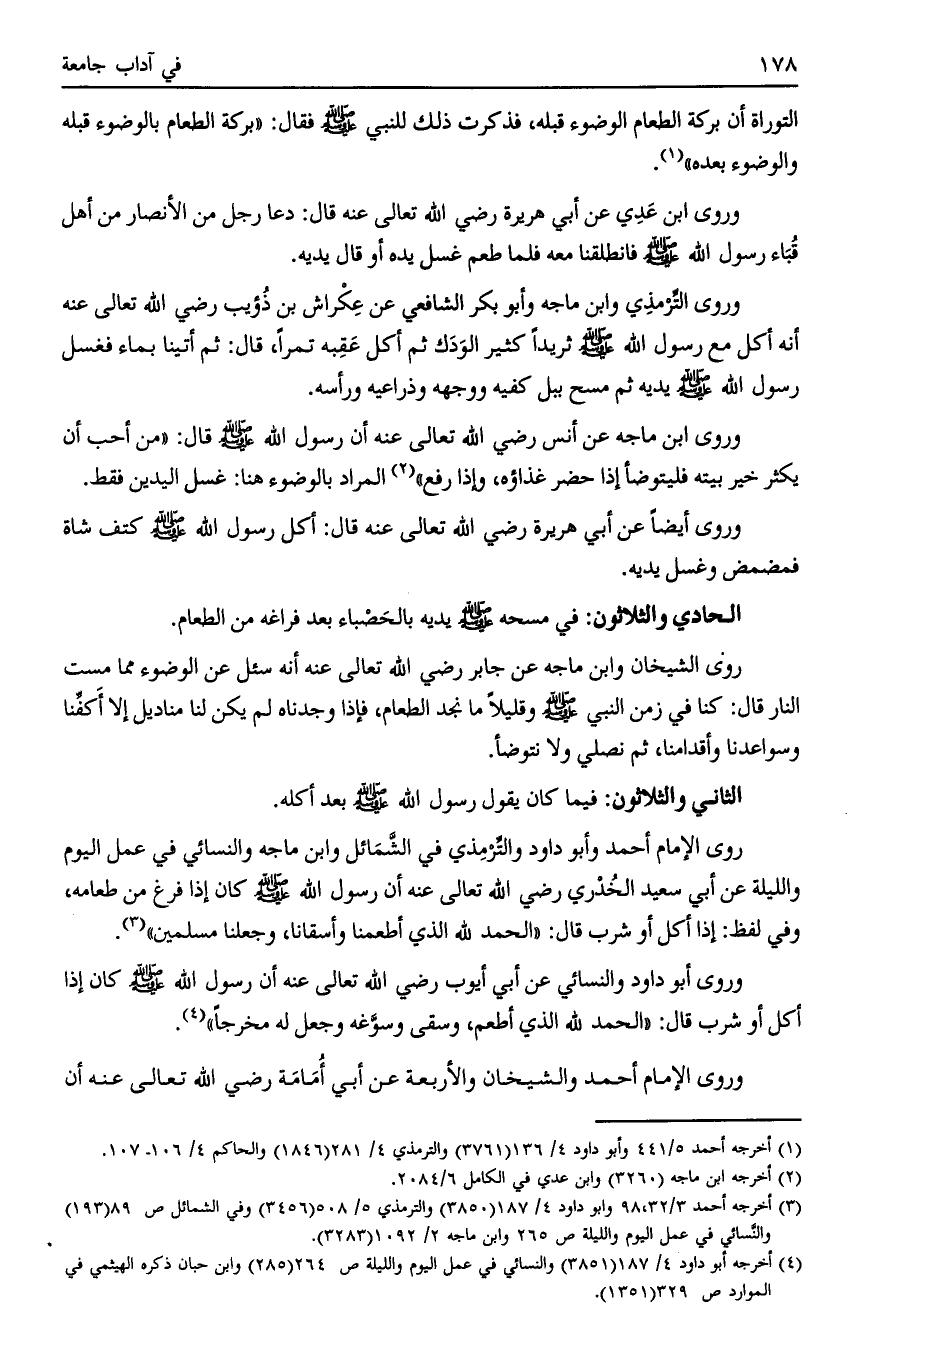 ١٧٨ في آداب جامعة
التوراة أن بركة الطعام الوضوء قبله، فذكرت ذلك للنبي ﷺ فقال: «بركة الطعام بالوضوء قبله
والوضوء بعده»(١).
وروى ابن عَدِي عن أبي هريرة رضي الله تعالى عنه قال: دعا رجل من الأنصار من أهل
قُبَاء رسول الله ﷺ فانطلقنا معه فلما طعم غسل يده أو قال يديه.
وروى التِّرْمذي وابن ماجه وأبو بكر الشافعي عن عِكْراش بن ذُؤيب رضي الله تعالى عنه
أنه أكل مع رسول الله ﷺ ثريداً كثير الوَدَك ثم أكل عَقِبه تمراً، قال: ثم أتينا بماء فغسل
رسول الله ﷺ يديه ثم مسح ببل كفيه ووجهه وذراعيه ورأسه.
وروى ابن ماجه عن أنس رضي الله تعالى عنه أن رسول الله ﷺ قال: «من أحب أن
يكثر خير بيته فليتوضأ إذا حضر غذاؤه، وإذا رفع»(٢) المراد بالوضوء هنا: غسل اليدين فقط.
وروى أيضاً عن أبي هريرة رضي الله تعالى عنه قال: أكل رسول الله ﷺ كتف شاة
فمضمض وغسل يديه.
الحادي والثلاثون: في مسحه ﷺ يديه بالحَصْباء بعد فراغه من الطعام.
روى الشيخان وابن ماجه عن جابر رضي الله تعالى عنه أنه سئل عن الوضوء مما مست
النار قال: كنا في زمن النبي ﷺ وقليلاً ما نجد الطعام، فإذا وجدناه لم يكن لنا مناديل إلا أَكفِّنا
وسواعدنا وأقدامنا، ثم نصلي ولا نتوضأ.
الثاني والثلاثون: فيما كان يقول رسول الله ﷺ بعد أكله.
روى الإمام أحمد وأبو داود والتِّرْمِذي في الشَّمَائل وابن ماجه والنسائي في عمل اليوم
والليلة عن أبي سعيد الخُدْري رضي الله تعالى عنه أن رسول الله ﷺ كان إذا فرغ من طعامه،
وفي لفظ: إذا أكل أو شرب قال: «الحمد لله الذي أطعمنا وأسقانا، وجعلنا مسلمين»(٣).
وروى أبو داود والنسائي عن أبي أيوب رضي الله تعالى عنه أن رسول الله ﷺ كان إذا
أكل أو شرب قال: «الحمد لله الذي أطعم، وسقى وسوَّغه وجعل له مخرجاً»(٤).
وروى الإمام أحمد والشيخان والأربعة عن أبي أُمَامَة رضي الله تعالى عنه أن
(١) أخرجه أحمد ٤٤١/٥ وأبو داود ٤/ ١٣٦(٣٧٦١) والترمذي ٤/ ٢٨١(١٨٤٦) والحاكم ٤/ ١٠٦ـ ١٠٧.
(٢) أخرجه ابن ماجه (٣٢٦٠) وابن عدي في الكامل ٢٠٨٤/٦.
(٣) أخرجه أحمد ٩٨،٣٢/٣ وابو داود ٤/ ١٨٧(٣٨٥٠) والترمذي ٥/ ٥٠٨(٣٤٥٦) وفي الشمائل ص ٨٩(١٩٣)
والنَّسائي في عمل اليوم والليلة ص ٢٦٥ وابن ماجه ٢/ ١٠٩٢(٣٢٨٣).
(٤) أخرجه أبو داود ٤/ ١٨٧(٣٨٥١) والنسائي في عمل اليوم والليلة ص ٢٦٤(٢٨٥) وابن حبان ذكره الهيثمي في
الموارد ص ٣٢٩(١٣٥١).